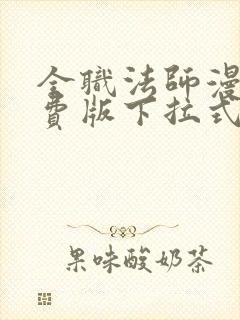 全職法師漫
費版下拉式
果味酸奶茶